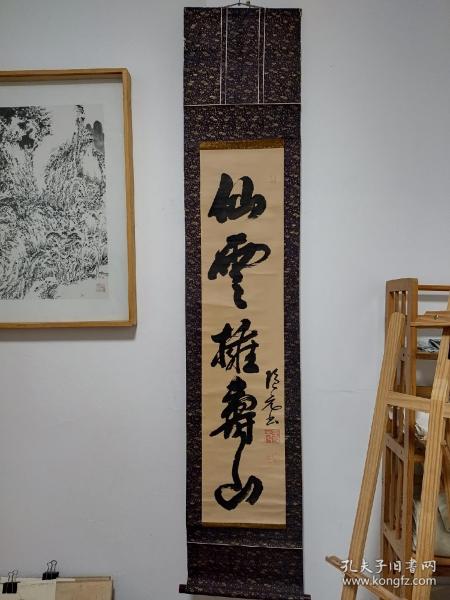 仙雲擁壽山
隠元書
孔夫子旧书网
www.kongfz.com